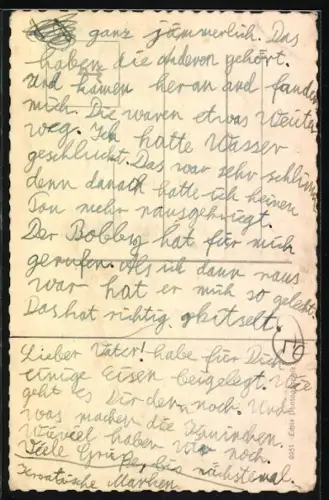 ganz jämmerlich. Das
haben die anderen gehört.
Und kamen heran and fanden
mich. Die waren etwas weiter
weg. Ich hatte Wasser
geschluckt. Das war sehr schlimm
denn danach hatte ich keinen
Ton mehr rausgekriegt.
Der Bobbey hat für mich
gerufen. Als ich dann raus
war hat er mich so geleckt.
Das hat richtig gkitselt.
16
Lieber Vater! habe für Dich
einige Eisen beigelegt. Wie
geht es Dir denn noch. Und
was machen die Kaninchen.
Wieviel haben wir noch.
Viele Grüße bis nächstemal.
Echte Photographie